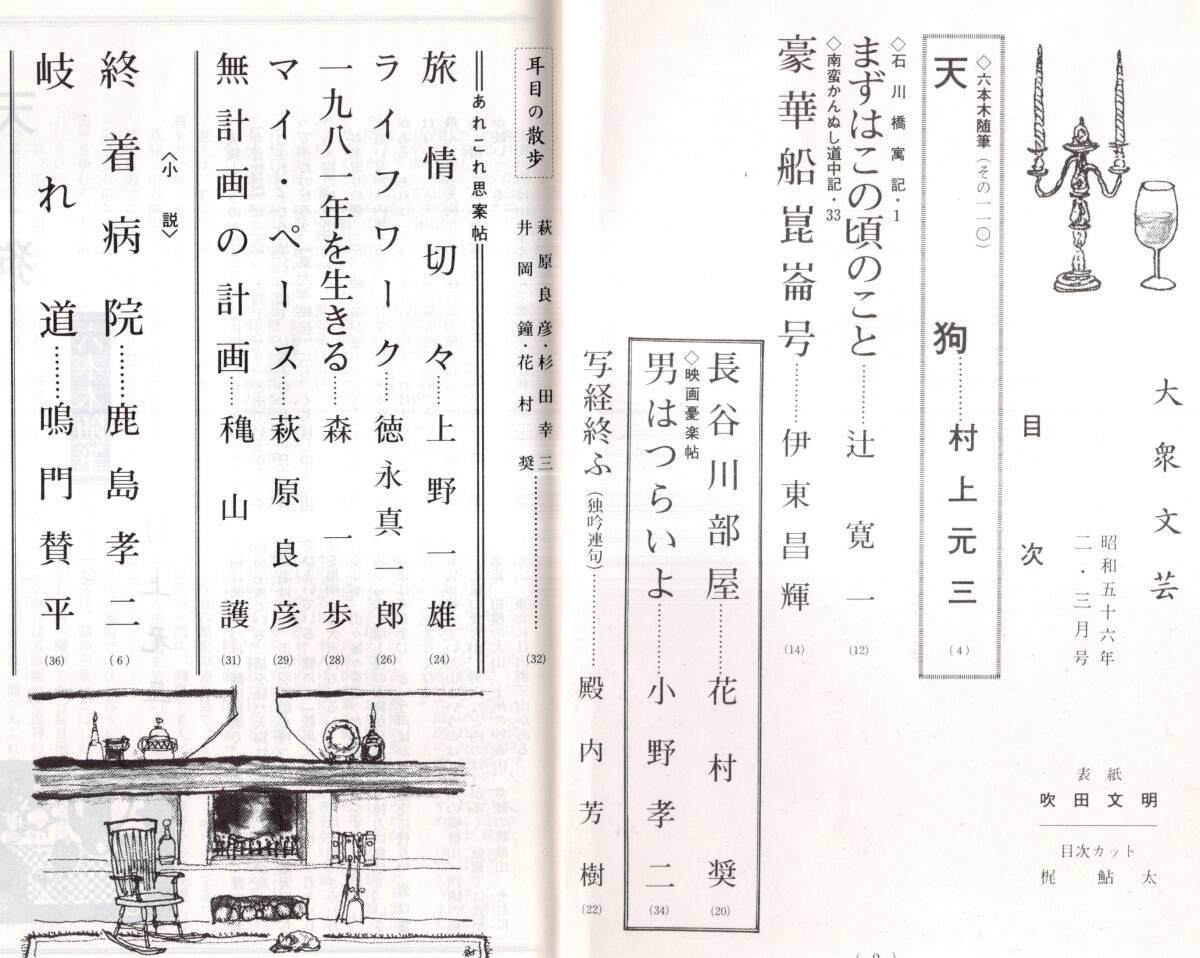 大衆文芸
昭和五十六年
二・三月号
目次
表紙
吹田文明
目次カット
梶鮎太
◇六本木随筆(その一一〇)
天狗………村上元三 (4)
◇石川橋寓記・1
まずはこの頃のこと………辻寛一 (12)
◇南蛮かんぬし道中記・33
豪華船崑崙号………伊東昌輝 (14)
長谷川部屋………花村奨 (20)
◇映画憂楽帖
男はつらいよ………小野孝二 (34)
写経終ふ(独吟連句)………殿内芳樹 (22)
耳目の散歩
萩原良彦・杉田幸三
井岡鐘・花村奨………(32)
あれこれ思案帖
旅情切々……上野一雄 (24)
ライフワーク……徳永真一郎 (26)
一九八一年を生きる……森一歩 (28)
マイ・ペース……萩原良彦 (29)
無計画の計画……穐山護 (31)
〈小説〉
終着病院………鹿島孝二 (6)
岐れ道………鳴門賛平 (36)